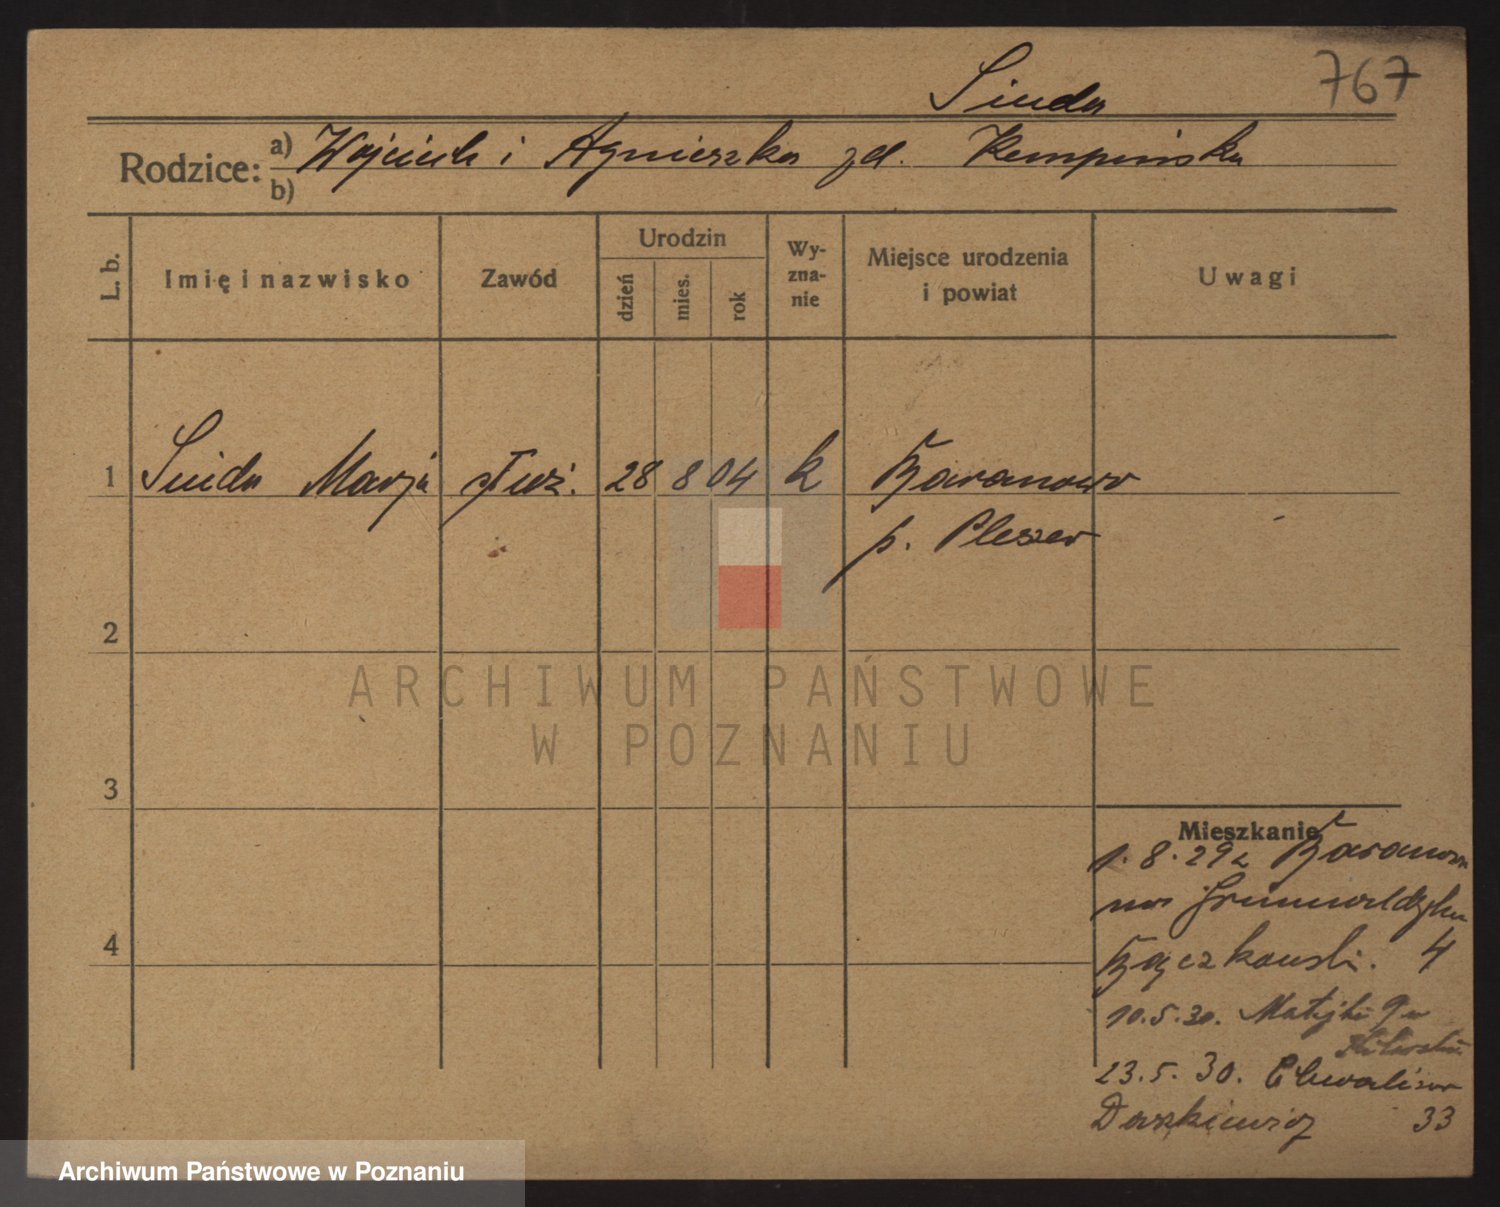 767
Siuda
Rodzice: a) Wojciech i Agnieszka zd. Kempińska
b)
L. b. Imię i nazwisko Zawód Urodzin dzień mies. rok Wy-zna-nie Miejsce urodzenia i powiat Uwagi
1 Siuda Marja służ. 28 8 04 k Baranowo
p. Pleszew
2
ARCHIWUM PAŃSTWOWE
W POZNANIU
3
Mieszkanie
1.8.29 z Baranowa
na Grunwaldzka
Bączkowski. 4
4
10.5.30. Matejki 9 u
23.5.30. Chwaliszewo
Daszkiewicz 33
Archiwum Państwowe w Poznaniu